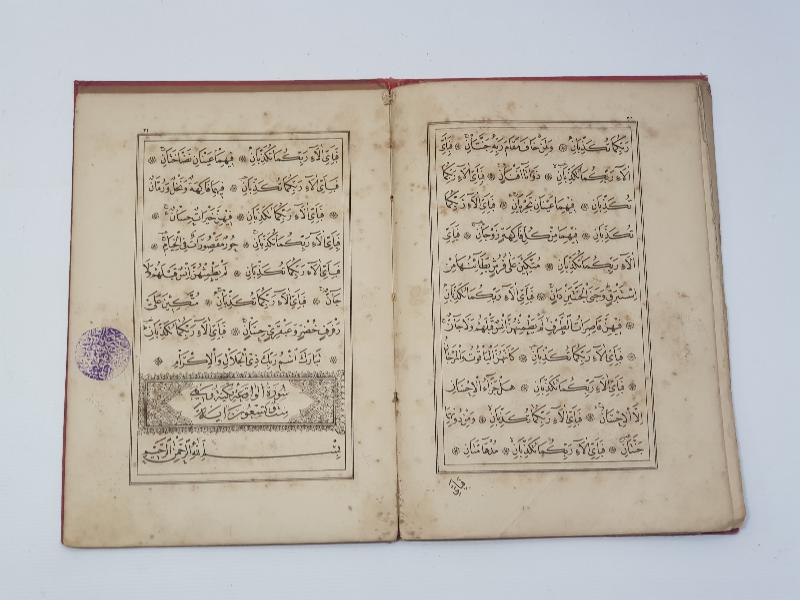 ٢٠
رَبِّكُمَا تُكَذِّبَانِ ❊ وَلِمَنْ خَافَ مَقَامَ رَبِّهِ جَنَّتَانِ ❊ فَبِأَيِّ
اٰلَاۤءِ رَبِّكُمَا تُكَذِّبَانِ ❊ ذَوَاتَا اَفْنَانٍ ❊ فَبِأَيِّ اٰلَاۤءِ رَبِّكُمَا
تُكَذِّبَانِ ❊ فِيهِمَا عَيْنَانِ تَجْرِيَانِ ❊ فَبِأَيِّ اٰلَاۤءِ رَبِّكُمَا
تُكَذِّبَانِ ❊ فِيهِمَا مِنْ كُلِّ فَاكِهَةٍ زَوْجَانِ ❊ فَبِأَيِّ
اٰلَاۤءِ رَبِّكُمَا تُكَذِّبَانِ ❊ مُتَّكِئِينَ عَلٰى فُرُشٍ بَطَاۤئِنُهَا مِنْ
اِسْتَبْرَقٍ وَجَنَى الْجَنَّتَيْنِ دَانٍ ❊ فَبِأَيِّ اٰلَاۤءِ رَبِّكُمَا تُكَذِّبَانِ
فِيهِنَّ قَاصِرَاتُ الطَّرْفِ لَمْ يَطْمِثْهُنَّ اِنْسٌ قَبْلَهُمْ وَلَا جَاۤنٌّ ❊
فَبِأَيِّ اٰلَاۤءِ رَبِّكُمَا تُكَذِّبَانِ ❊ كَاَنَّهُنَّ الْيَاقُوتُ وَالْمَرْجَانُ
❊ فَبِأَيِّ اٰلَاۤءِ رَبِّكُمَا تُكَذِّبَانِ ❊ هَلْ جَزَاۤءُ الْاِحْسَانِ
اِلَّا الْاِحْسَانُ ❊ فَبِأَيِّ اٰلَاۤءِ رَبِّكُمَا تُكَذِّبَانِ ❊ وَمِنْ دُونِهِمَا
جَنَّتَانِ ❊ فَبِأَيِّ اٰلَاۤءِ رَبِّكُمَا تُكَذِّبَانِ ❊ مُدْهَاۤمَّتَانِ ❊
٢١
فَبِأَيِّ اٰلَاۤءِ رَبِّكُمَا تُكَذِّبَانِ ❊ فِيهِمَا عَيْنَانِ نَضَّاخَتَانِ ❊
فَبِأَيِّ اٰلَاۤءِ رَبِّكُمَا تُكَذِّبَانِ ❊ فِيهِمَا فَاكِهَةٌ وَنَخْلٌ وَرُمَّانٌ
❊ فَبِأَيِّ اٰلَاۤءِ رَبِّكُمَا تُكَذِّبَانِ ❊ فِيهِنَّ خَيْرَاتٌ حِسَانٌ ❊
فَبِأَيِّ اٰلَاۤءِ رَبِّكُمَا تُكَذِّبَانِ ❊ حُورٌ مَقْصُورَاتٌ فِي الْخِيَامِ ❊
فَبِأَيِّ اٰلَاۤءِ رَبِّكُمَا تُكَذِّبَانِ ❊ لَمْ يَطْمِثْهُنَّ اِنْسٌ قَبْلَهُمْ وَلَا
جَاۤنٌّ ❊ فَبِأَيِّ اٰلَاۤءِ رَبِّكُمَا تُكَذِّبَانِ ❊ مُتَّكِئِينَ عَلٰى
رَفْرَفٍ خُضْرٍ وَعَبْقَرِيٍّ حِسَانٍ ❊ فَبِأَيِّ اٰلَاۤءِ رَبِّكُمَا تُكَذِّبَانِ ❊
تَبَارَكَ اسْمُ رَبِّكَ ذِي الْجَلَالِ وَالْاِكْرَامِ ❊
سُورَةُ الْوَاقِعَةِ مَكِّيَّةٌ وَهِيَ
سِتٌّ وَتِسْعُونَ اٰيَةً
بِسْمِ اللّٰهِ الرَّحْمٰنِ الرَّحِيمِ